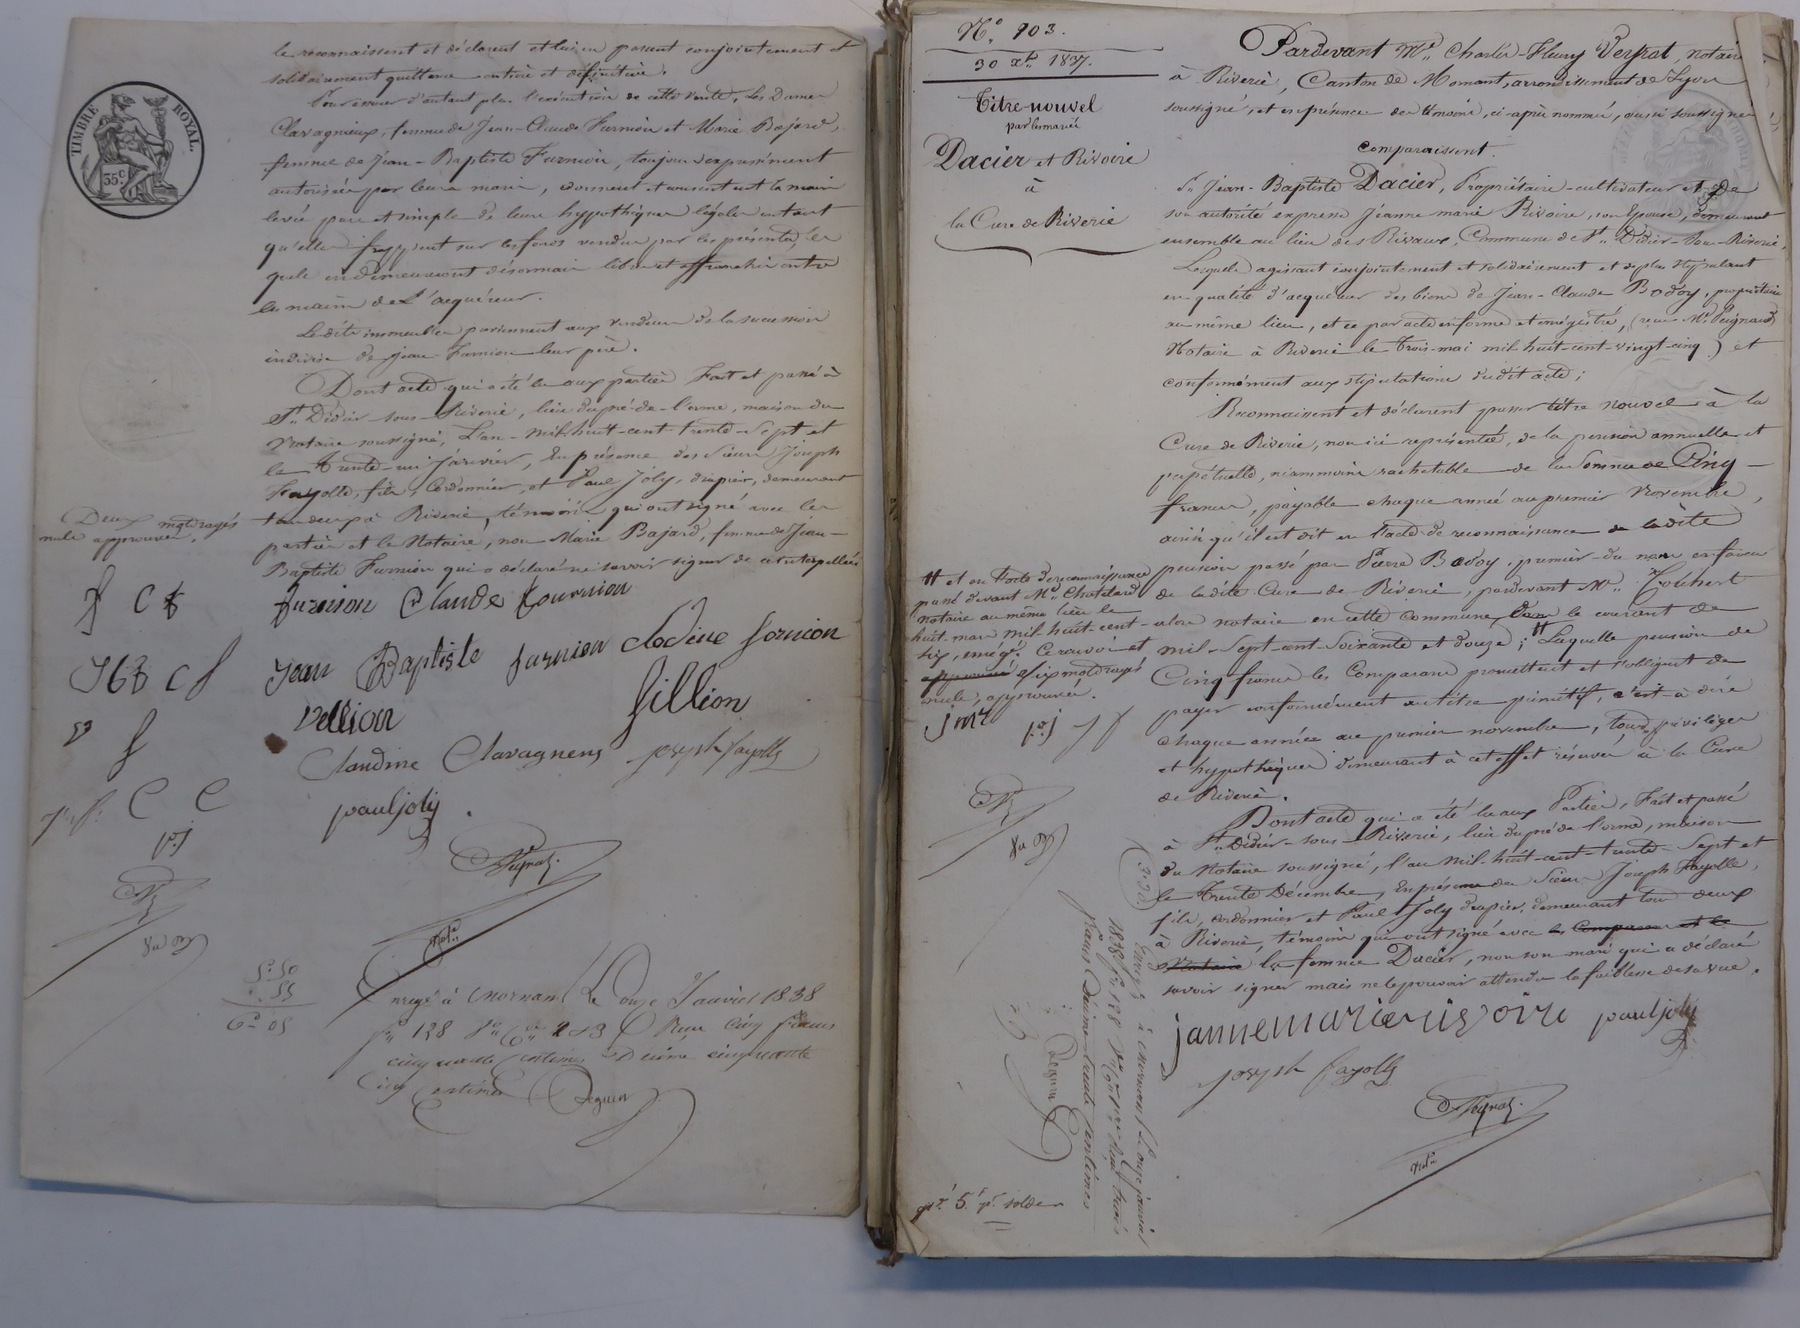 le reconnaissent et déclarent et lui en passent conjointement et
solidairement quittance entière et définitive.
Pour assurer d'autant plus l'exécution de cette vente, Les Dames
Clavagnieux, femme de Jean-Claude Furnion et Marie Bajard,
femme de Jean-Baptiste Furnion, toujours expressément
autorisées par leurs maris, donnent et consentent la main
levée pure et simple de leurs hypothèques légales en tant
qu'elles frappent sur les fonds vendus par les présentes les
quels en demeureront désormais libres et affranchis entre
les mains de L'acquéreur.
Les dits immeubles proviennent aux vendeurs de la succession
indivise de Jean Furnion leur père.
Dont acte qui a été lu aux parties Fait et passé à
St. Didier-sous-Riverie, lieu du pré-de-l'orme, maison du
Notaire soussigné, L'an mil-huit-cent-trente-Sept et
le Trente-un Janvier, En présence des Sieurs Joseph
Fayolle, fils, Cordonnier, et Paul Joly, drapier, demeurant
tous deux à Riverie, témoins qui ont signé avec les
parties et le Notaire, non Marie Bajard, femme de Jean-
Baptiste Furnion qui a déclaré ne savoir signer de ce interpellée
TIMBRE ROYAL.
35 c
Deux mots rayés
nuls approuvés,
furnion Claude fournion
Jean Baptiste furnion clodine fornion
vellion
fillion
Claudine Clavagneux joseph fayolle
paul joly
Not.re
Enregé à Mornant Le Onze Janvier 1838
fo 128 Vo Ces 2 & 3 Reçu Cinq francs
cinquante Centimes Décime cinquante
Cinq Centimes Seguin
No. 903.
30 xbre 1837.
Titre-nouvel
par les mariés
Dacier et Rivoire
à
la Cure de Riverie
Pardevant Me. Charles-Fleury Peyrat, notaire
à Riverie, Canton de Mornant, arrondissement de Lyon
soussigné, et en présence des témoins, ci-après nommés, aussi soussignés
Comparaissent.
Sr. Jean-Baptiste Dacier, Propriétaire-cultivateur et de
son autorité expresse Jeanne marie Rivoire, son Epouse, demeurant
ensemble au lieu des Rivaux, Commune de St. Didier-Sous-Riverie,
Lesquels agissant conjointement et solidairement et de plus stipulant
en qualité d'acquéreurs des biens de Jean-Claude Bodoy, propriétaire
au même lieu, et ce par acte en forme et enrégistré, (reçu Me. Peignaud
Notaire à Riverie le Trois-mai mil-huit-cent-vingt-cinq) et
conformément aux stipulations dudit acte;
Reconnaissent et déclarent passer titre nouvel à la
Cure de Riverie, non ici représentée, de la pension annuelle et
perpétuelle, néanmoins rachetable de la Somme de Cinq
francs, payable chaque année au premier Novembre,
ainsi qu'il est dit en l'acte de reconnaissance de ladite
pension passé par Pierre Bodoy, premier du nom en faveur
de ladite Cure de Riverie, pardevant Me. Coubert
alors notaire en cette commune, dans le courant de
mil-Sept-cent-Soixante et douze; Laquelle pension de
Cinq francs les Comparans promettent et s'obligent de
payer conformément au titre primitif, c'est-à-dire
chaque année au premier novembre, tous privilèges
et hypothèques demeurant à cet effet réservés à la Cure
de Riverie.
Dont acte qui a été lu aux Parties, Fait et passé
à St. Didier-sous-Riverie, lieu du pré de l'orme, maison
du Notaire soussigné, l'an mil-huit-cent-trente-Sept et
le Trente Décembre, En présence des Sieurs Joseph Fayolle,
fils, cordonnier et Paul Joly drapier, demeurant tous deux
à Riverie, témoins qui ont signé avec les Comparans et le
Notaire la femme Dacier, non son mari qui a déclaré
savoir signer mais ne le pouvoir attendu la faiblesse de sa vue.
et en l'acte de reconnaissance
passé devant Me. Chatelard
notaire au même lieu le
huit mars mil-huit-cent-
six, enregé. Ce renvoi et
approuvés six mots rayés
nuls, approuvés.
jmr
pj jf
jannemarierivoire paul joly
joseph fayolle
Not.re
Enregé à Mornant Le Onze janvier
1838 fo 128
francs Décime trente Centimes
Seguin